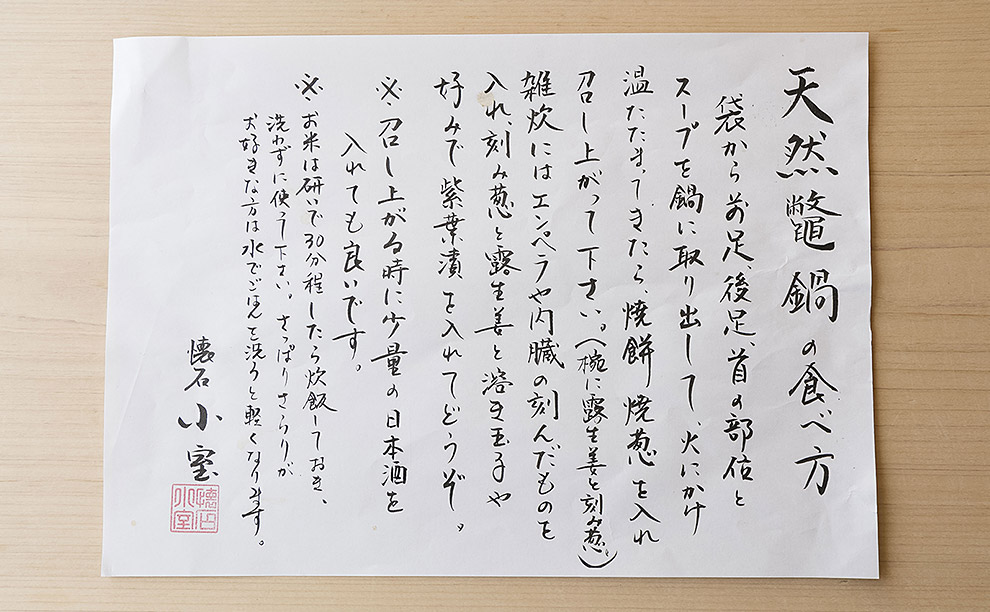 天然鼈鍋の食べ方
袋から前足、後足、首の部位と
スープを鍋に取り出して、火にかけ
温たたまってきたら、焼餅焼葱を入れ
召し上がって下さい。(椀に露生姜と刻み葱)
雑炊にはエンペラや内臓の刻んだものを
入れ、刻み葱と露生姜と溶き玉子や
好みで紫葉漬を入れてどうぞ。
※召し上がる時に少量の日本酒を
入れても良いです。
※お米は研いで30分程したら炊飯しておき、
洗わずに使う下さい。さっぱりさらりが
お好きな方は水でごはんを洗うと軽くなります。
懐石 小室
懐石
小室